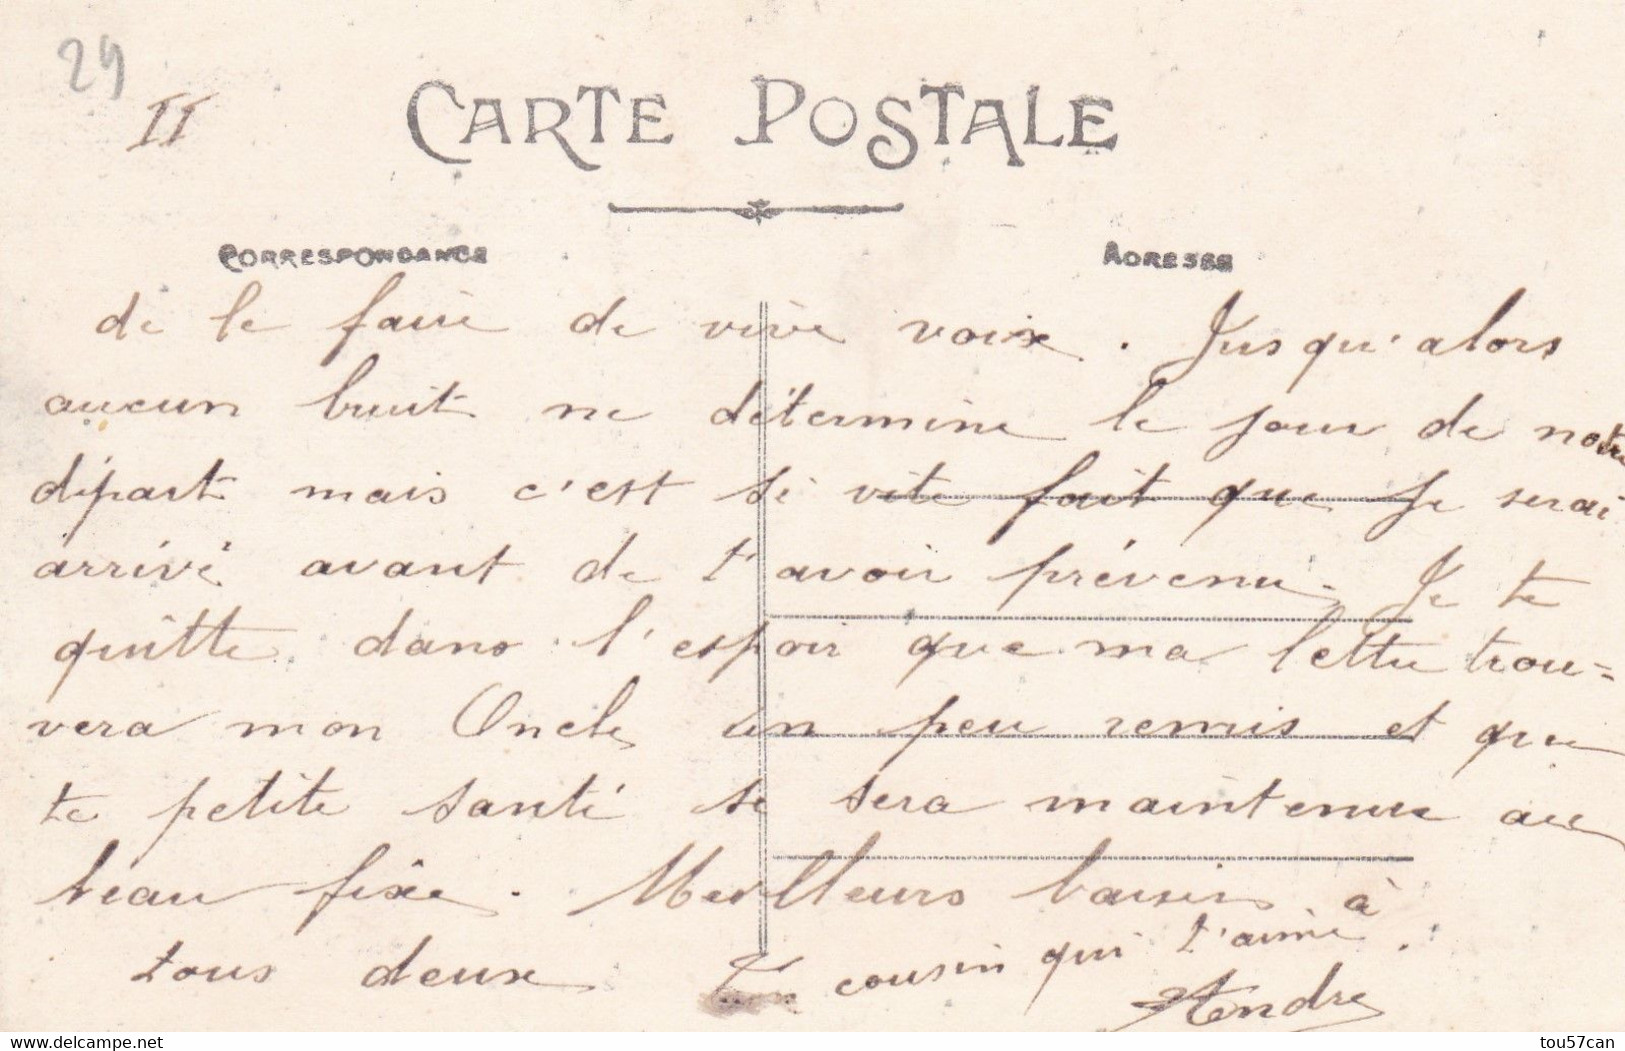 29
II
CARTE POSTALE
CORRESPONDANCE
ADRESSE
de le faire de vive voix. Jusqu'alors
aucun bruit ne détermine le jour de notre
départ mais c'est si vite fait que je serai
arrivé avant de t'avoir prévenu. Je te
quitte dans l'espoir que ma lettre trou=
vera mon Oncle un peu remis et que
ta petite santé se sera maintenue au
beau fixe. Meilleurs baisers à
tous deux Ton cousin qui t'aime.
Andre
tou57can